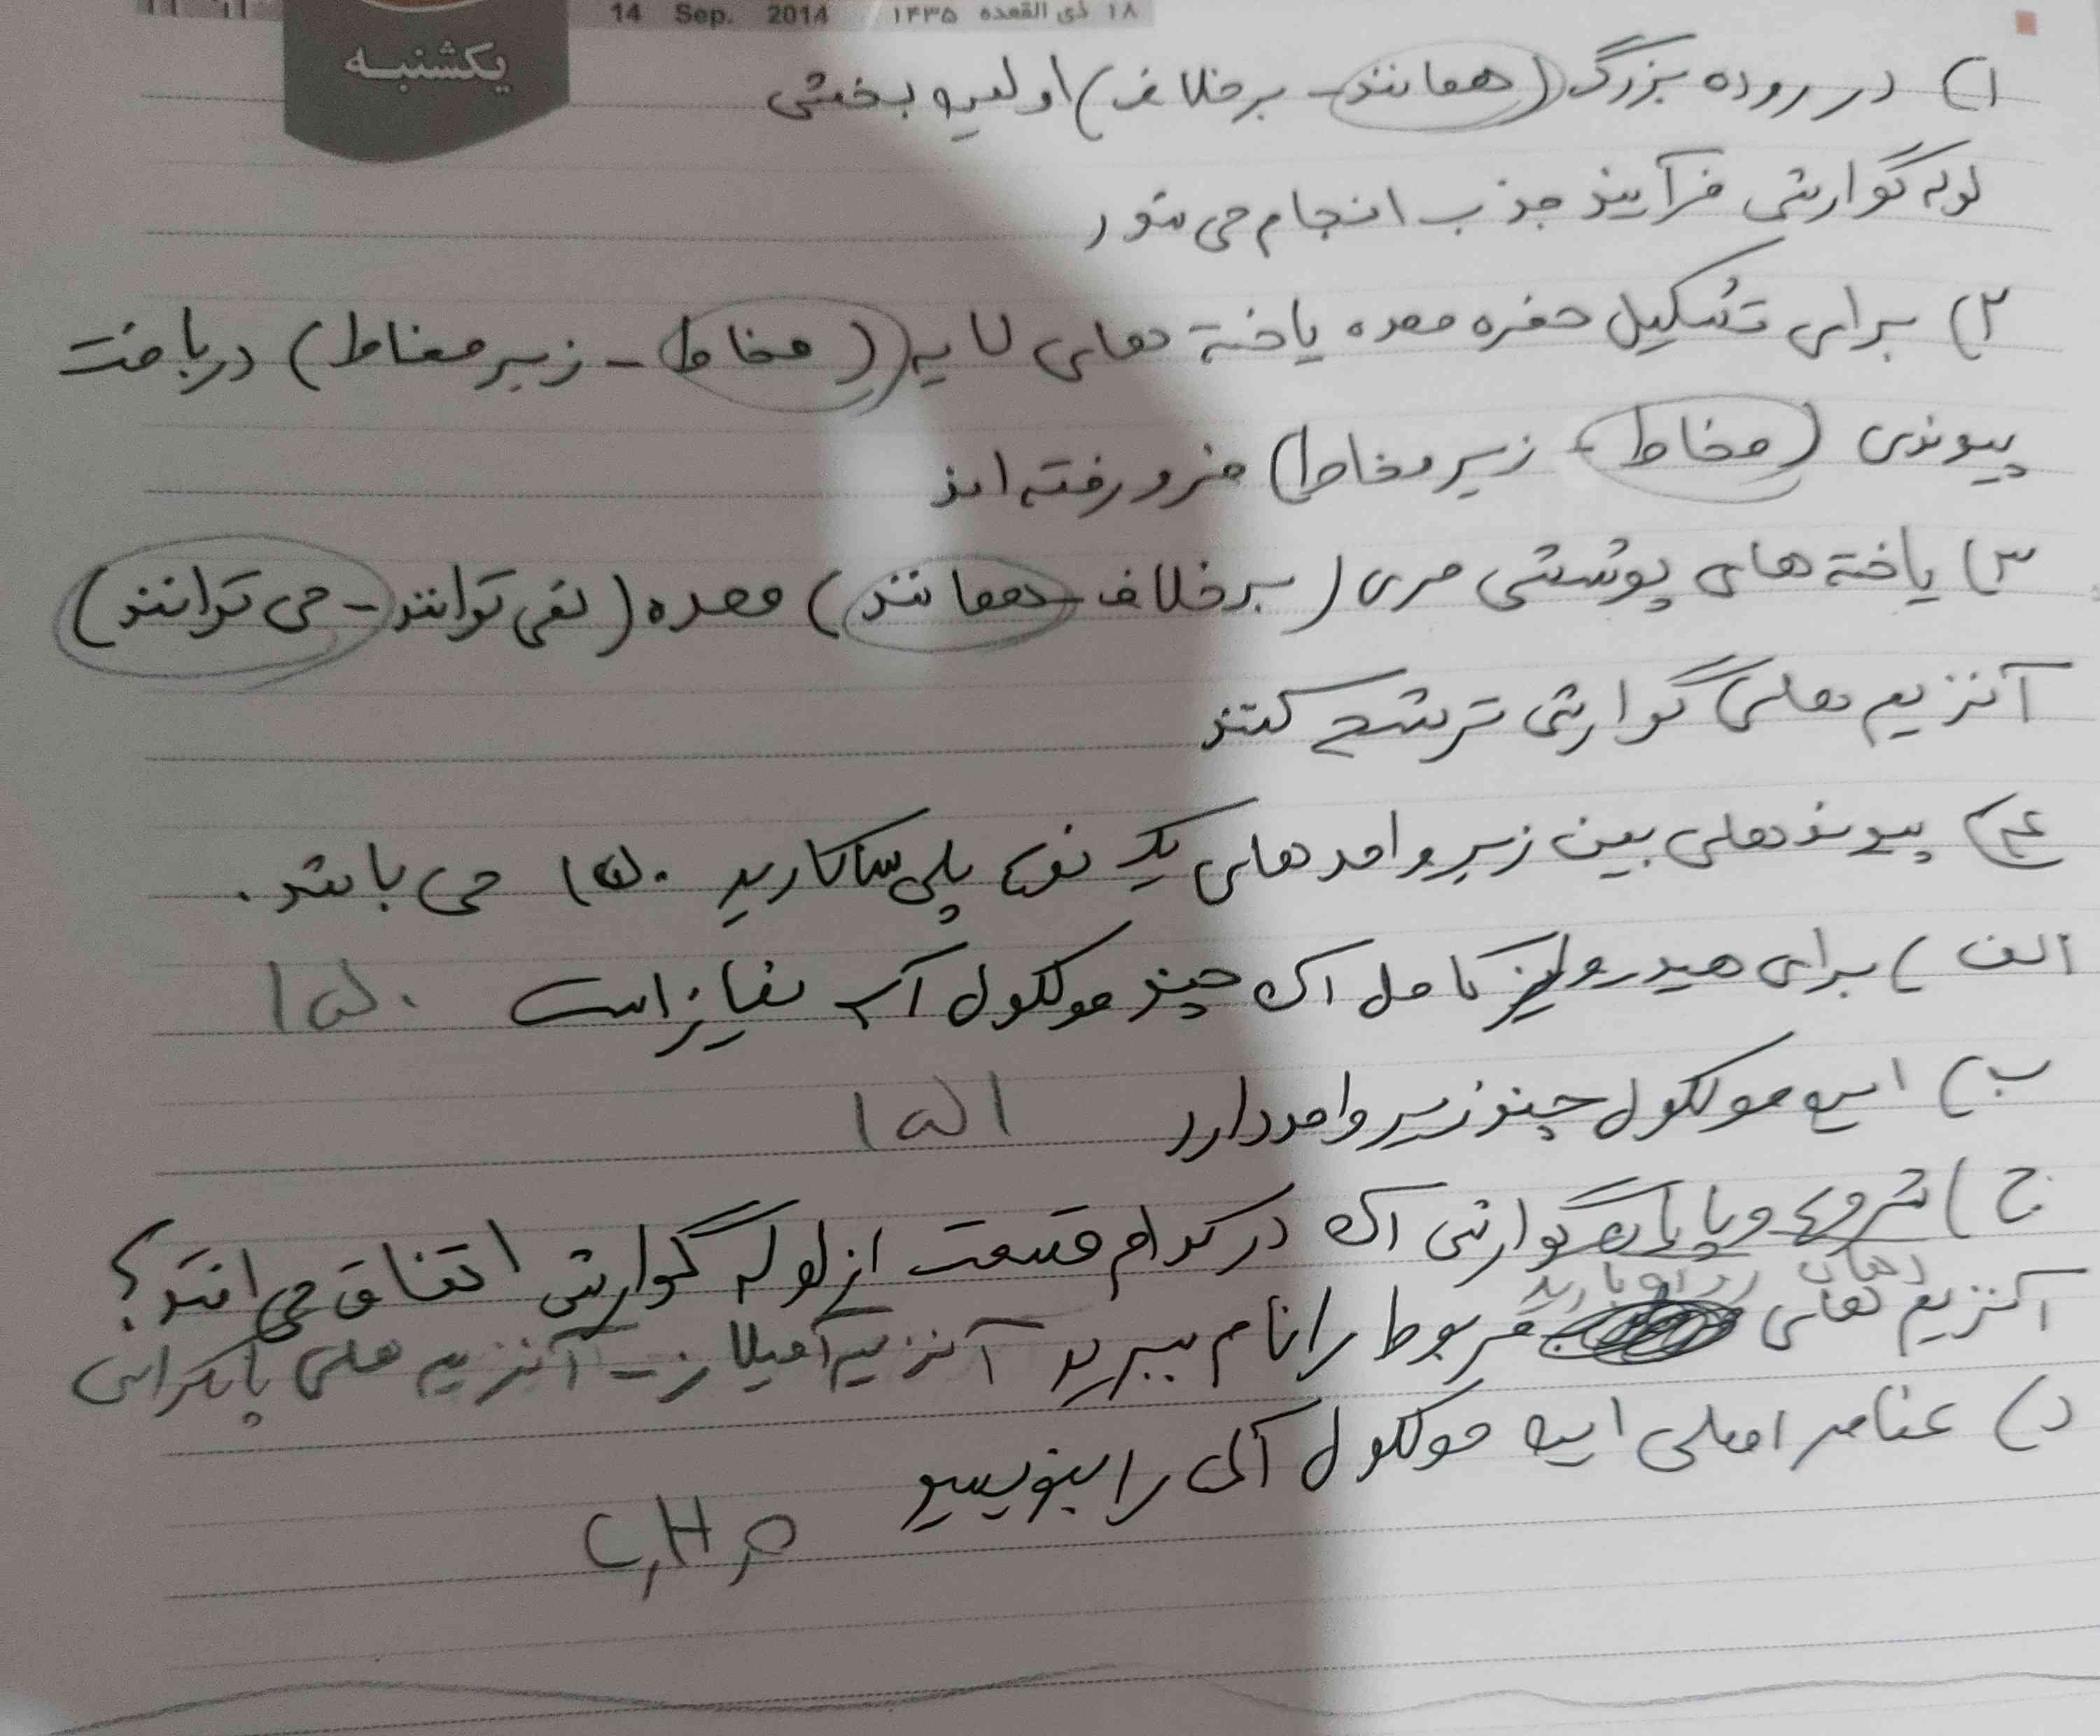 14 Sep. 2014 ۱۸ ذی القعده ۱۴۳۵
یکشنبه
۱) در روده بزرگ (همانند - برخلاف) اولین بخش
لوله گوارش فرآیند جذب انجام می شود
۲) برای تشکیل حفره معده یاخته های لایه (مخاط - زیر مخاط) در بافت
پیوندی (مخاط - زیر مخاط) فرو رفته اند
۳) یاخته های پوششی مری (برخلاف - همانند) معده (نمی توانند - می توانند)
آنزیم های گوارشی ترشح کنند
۴) پیوندهای بین زیر واحد های یک نوع پلی ساکارید ۱۵۰ می باشد.
الف) برای هیدرولیز کامل آن چند مولکول آب نیاز است ۱۵۰
ب) این مولکول چند زیر واحد دارد ۱۵۱
ج) شروع و پایان گوارش آن در کدام قسمت از لوله گوارش اتفاق می افتد؟
دهان روده باریک
آنزیم های مربوط را نام ببرید آنزیم آمیلاز - آنزیم های پانکراس
د) عناصر اصلی این مولکول آلی را بنویسید
C, H, O